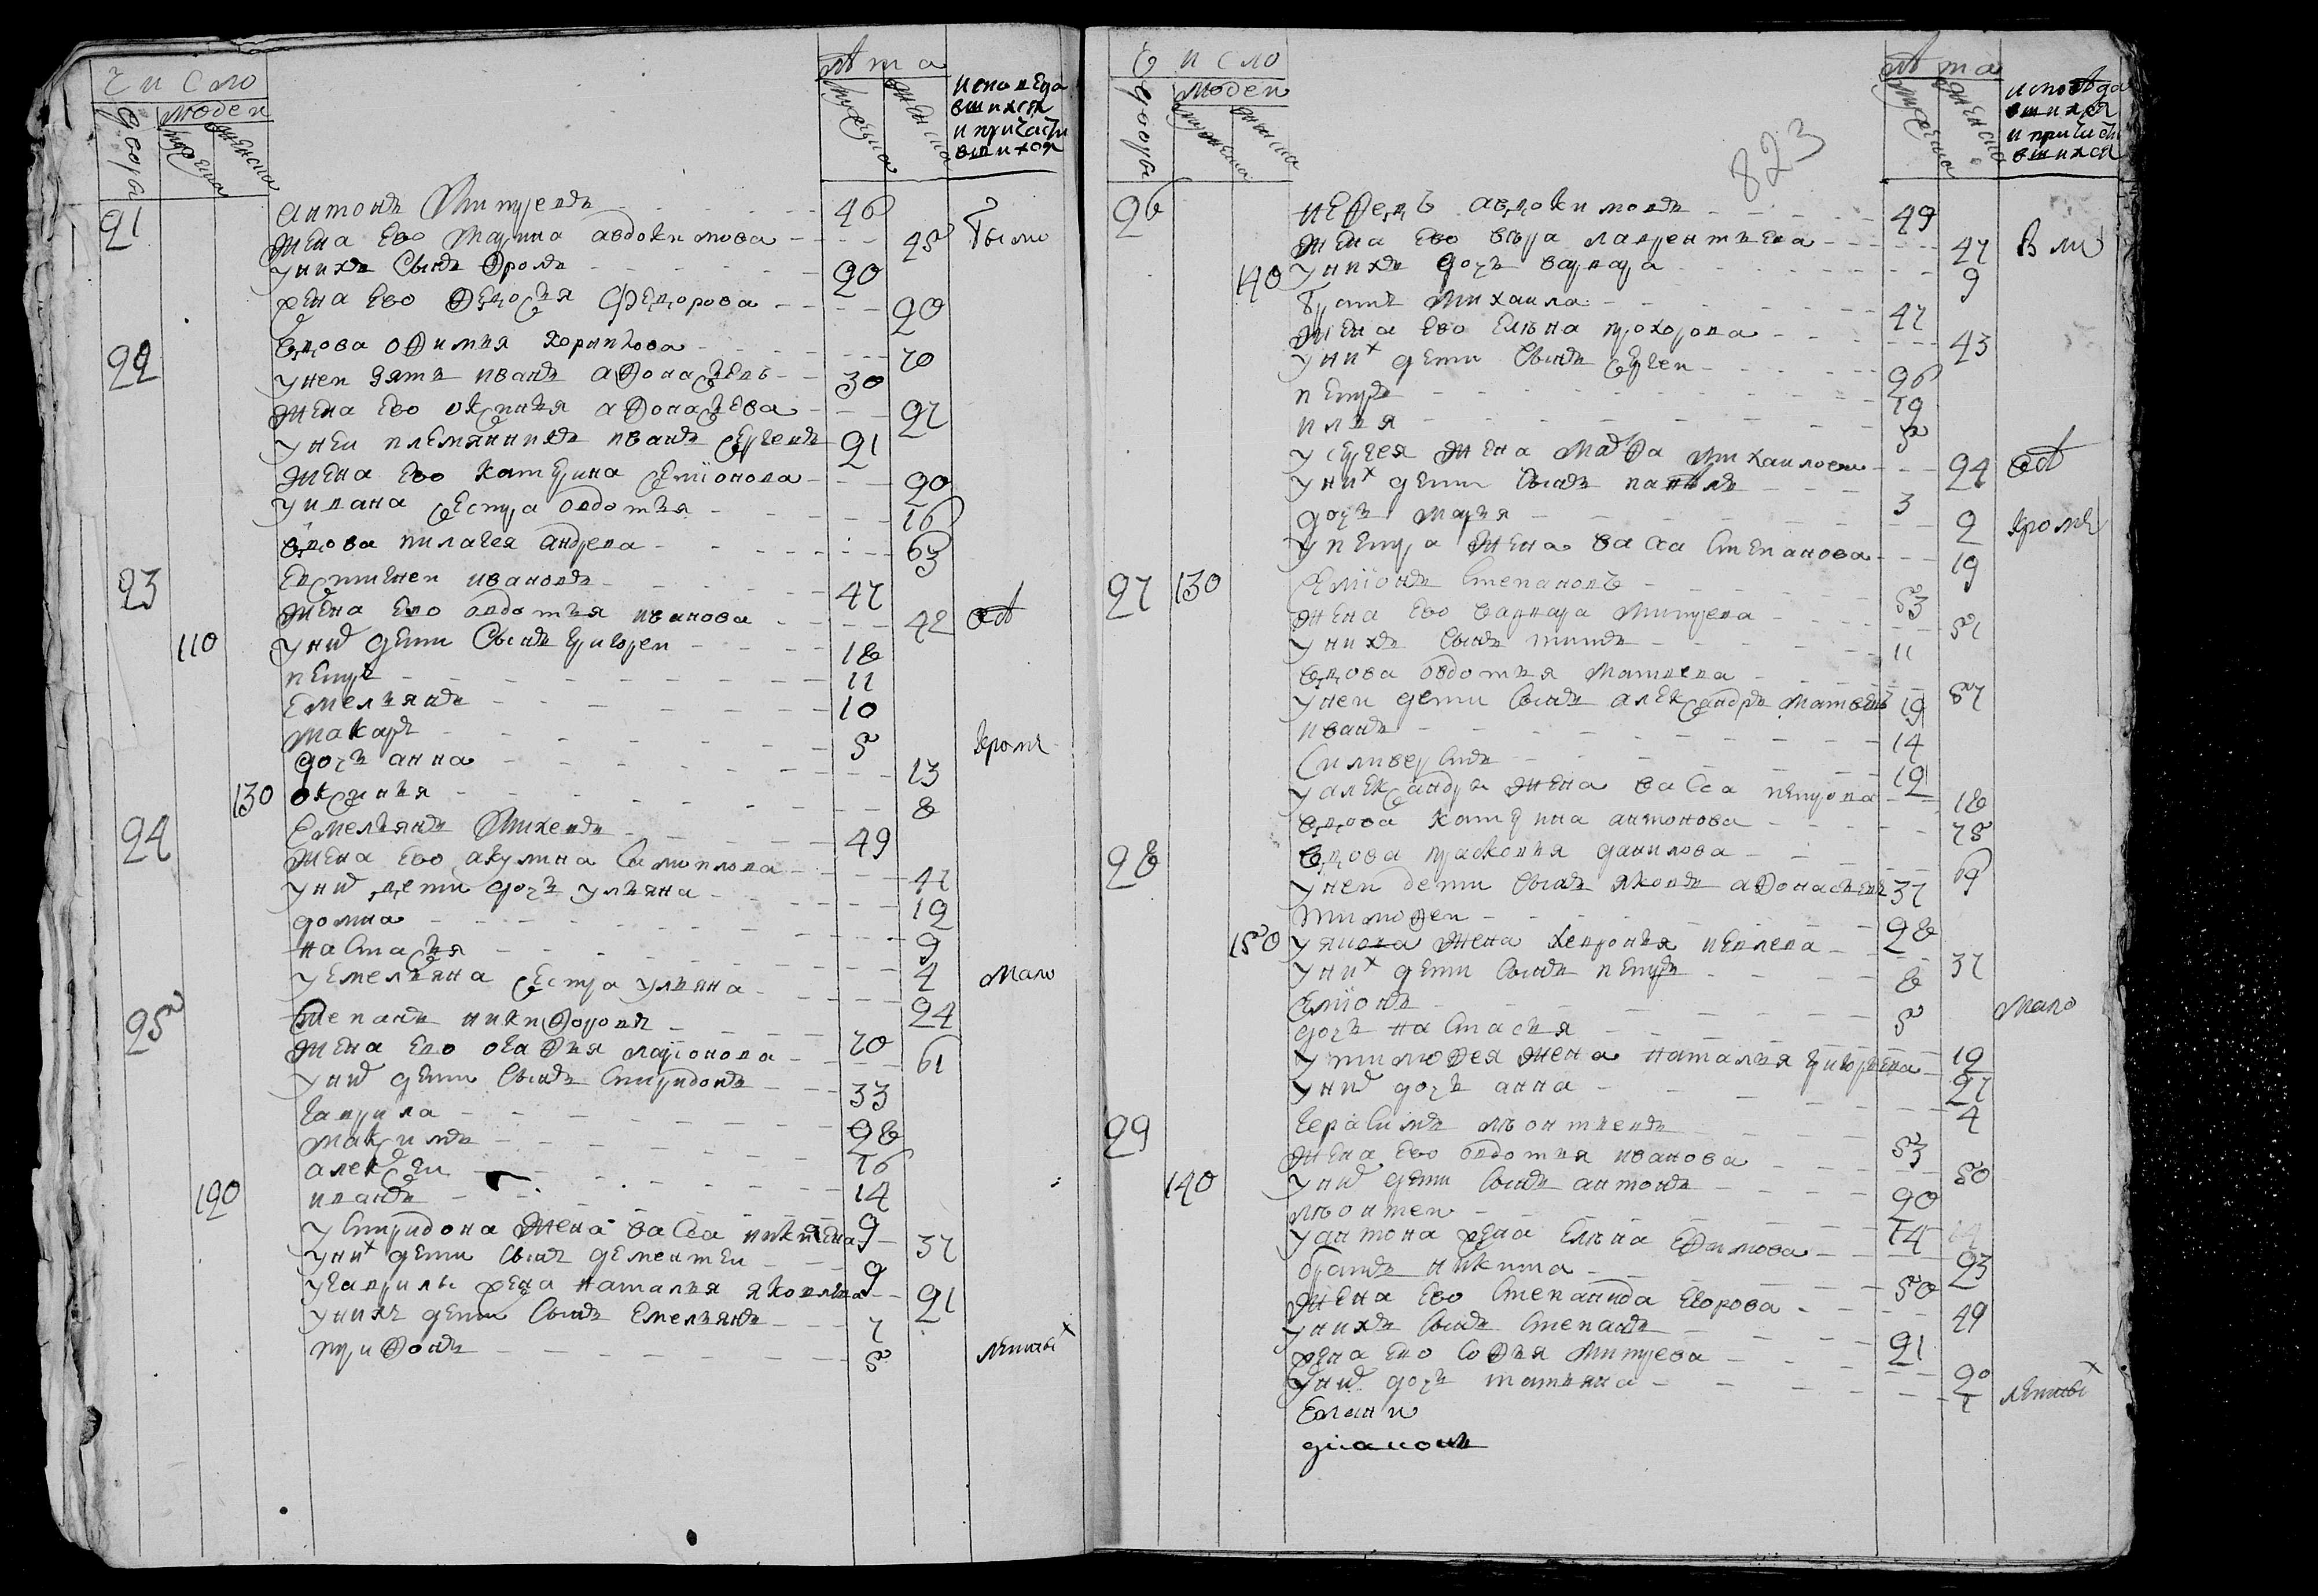 Число
Дворы
Людей
мужеска
женска
Лѣта
мужеска
женска
исповеда
вшихся
и причасти
вшихся
21
антонъ Дмитреевъ 46
Жена Ево Марина авдокимова 45 были
у нихъ Сынъ Фролъ 20
жена Ево Федосья Федорова 20
22
вдова Офимья 70
у неи зять иванъ афонасьевъ 30
Жена Ево оксинья афонасьева 27
у неи племянникъ иванъ Сергеевъ 21
Жена Ево Катерина Семионова 20
у ивана Сестра овдотья 16
вдова пилагея андреева 63
23
Евстигнеи ивановъ 47
Жена Ево овдотья иванова 42
110
у них дети Сынъ григореи 18
петръ 11
Емельянъ 10
макаръ 5 кроме
дочь анна 13
130
оксинья 8
24
Емельянъ Михеевъ 49
Жена Ево акулина Самоилова 47
у них дети дочь ульяна 12
домна 9
настасья 4
у Емельяна Сестра ульяна 24 мало
25
Степанъ никифоровъ 70
Жена Ево огафья ларионова 61
у них дети Сынъ Спиридонъ 33
гаврила 28
максимъ 16
алексеи 14
120
иванъ 9
у Спиридона Жена васса никитина 37
у них дети Сынъ дементеи 9
у гаврилы жена наталья яковлева 21
у нихъ дети Сынъ Емельянъ 7
трифонъ 5 летных
Число
Дворы
Людей
мужеска
женска
823
Лѣта
мужеска
женска
исповеда
вшихся
и причасти
вшихся
26
нефедъ авдокимовъ 49
Жена Ево вѣра лаврентьева 47
140
у нихъ дочь варвара 9
братъ михаила 47
Жена Ево Елѣна прохорова 43
у них дети Сынъ Сергеи 26
петръ 19
илья 5
у Сергея Жена Марфа михаилова 24
у них дети Сынъ павелъ 3
дочь марья 2 кромѣ
у петра Жена васса Степанова 19
27 130
Семионъ Степановъ 53
Жена Ево варвара дмитрева 51
у нихъ Сынъ титъ 11
вдова овдотья матвеева 57
у неи дети Сынъ александръ матвеевъ 19
иванъ 14
Силиверстъ 12
у александра Жена васса петрова 18
вдова Катерина антонова 75
28
вдова прасковья данилова 69
у неи дети Сынъ яковъ афонасьевъ 37
тимофеи 28
150
у якова Жена хевронья иевлева 37
у них дети Сынъ петръ 8
Семионъ 5
дочь настасья 12 мало
у тимофея Жена наталья григорьева 27
у них дочь анна 4
29
герасимъ лѣонтьевъ 53
Жена Ево овдотья иванова 50
140
у них дети Сынъ антонъ 20
лѣонтеи 14
у антона жена Елѣна Ефимова 23
братъ никита 50
Жена Ево Степанида Егорова 49
у нихъ Сынъ Степанъ 21
жена Ево Софья дмитрева 20
у них дочь татьяна 1 летных
диаконъ